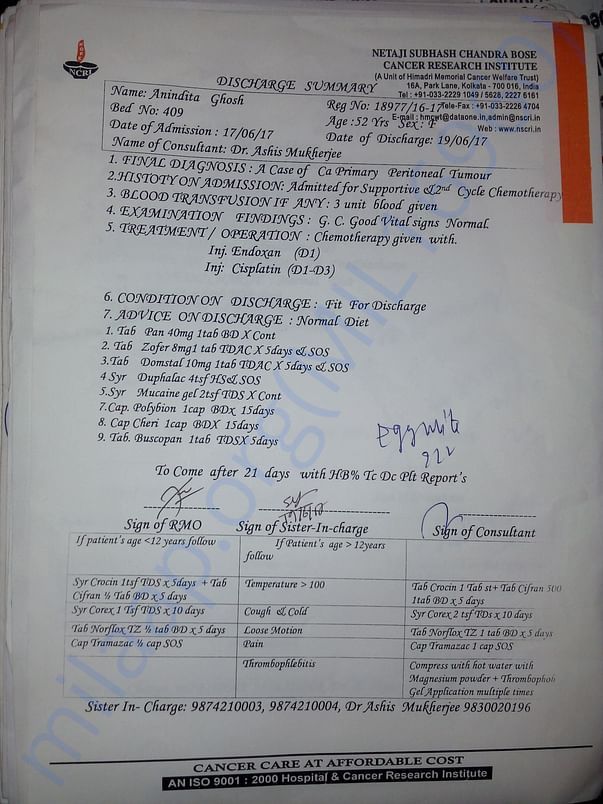 NCRI
NETAJI SUBHASH CHANDRA BOSE
CANCER RESEARCH INSTITUTE
(A Unit of Himadri Memorial Cancer Welfare Trust)
16A, Park Lane, Kolkata - 700 016, India
Tel : +91-033-2229 1049 / 5628, 2227 6161
Tele-Fax : +91-033-2226 4704
E-mail : hmcwt@dataone.in,admin@nscri.in
Web : www.nscri.in
DISCHARGE SUMMARY
Name: Anindita Ghosh
Reg No: 18977/16-17
Bed No: 409
Age :52 Yrs Sex : F
Date of Admission : 17/06/17
Date of Discharge: 19/06/17
Name of Consultant: Dr. Ashis Mukherjee
1. FINAL DIAGNOSIS : A Case of Ca Primary Peritoneal Tumour
2.HISTOTY ON ADMISSION: Admitted for Supportive &2nd Cycle Chemotherapy
3. BLOOD TRANSFUSION IF ANY : 3 unit blood given
4. EXAMINATION FINDINGS : G. C. Good Vital signs Normal.
5. TREATMENT / OPERATION : Chemotherapy given with.
Inj. Endoxan (D1)
Inj: Cisplatin (D1-D3)
6. CONDITION ON DISCHARGE : Fit For Discharge
7. ADVICE ON DISCHARGE : Normal Diet
1. Tab Pan 40mg 1tab BD X Cont
2. Tab Zofer 8mg1 tab TDAC X 5days & SOS
3.Tab Domstal 10mg 1tab TDAC X 5days & SOS
4.Syr Duphalac 4tsf HS& SOS
5.Syr Mucaine gel 2tsf TDS X Cont
7.Cap. Polybion 1cap BDx 15days
8. Cap. Cheri 1cap BDX 15days
9. Tab. Buscopan 1tab TDSX 5days
To Come after 21 days with HB% Tc Dc Plt Report's
Sign of RMO Sign of Sister-In-charge Sign of Consultant
If patient's age <12 years follow
If Patient's age > 12years follow
Syr Crocin 1tsf TDS x 5days + Tab Cifran ½ Tab BD x 5 days
Temperature > 100
Tab Crocin 1 Tab st+ Tab Cifran 500 1tab BD x 5 days
Syr Corex 1 Tsf TDS x 10 days
Cough & Cold
Syr Corex 2 tsf TDs x 10 days
Tab Norflox TZ ½ tab BD x 5 days
Loose Motion
Tab Norflox TZ 1 tab BD x 5 days
Cap Tramazac ½ cap SOS
Pain
Cap Tramazac 1 cap SOS
Thrombophlebitis
Compress with hot water with
Magnesium powder + Thrombophob
Gel Application multiple times
Sister In- Charge: 9874210003, 9874210004, Dr Ashis Mukherjee 9830020196
CANCER CARE AT AFFORDABLE COST
AN ISO 9001 : 2000 Hospital & Cancer Research Institute